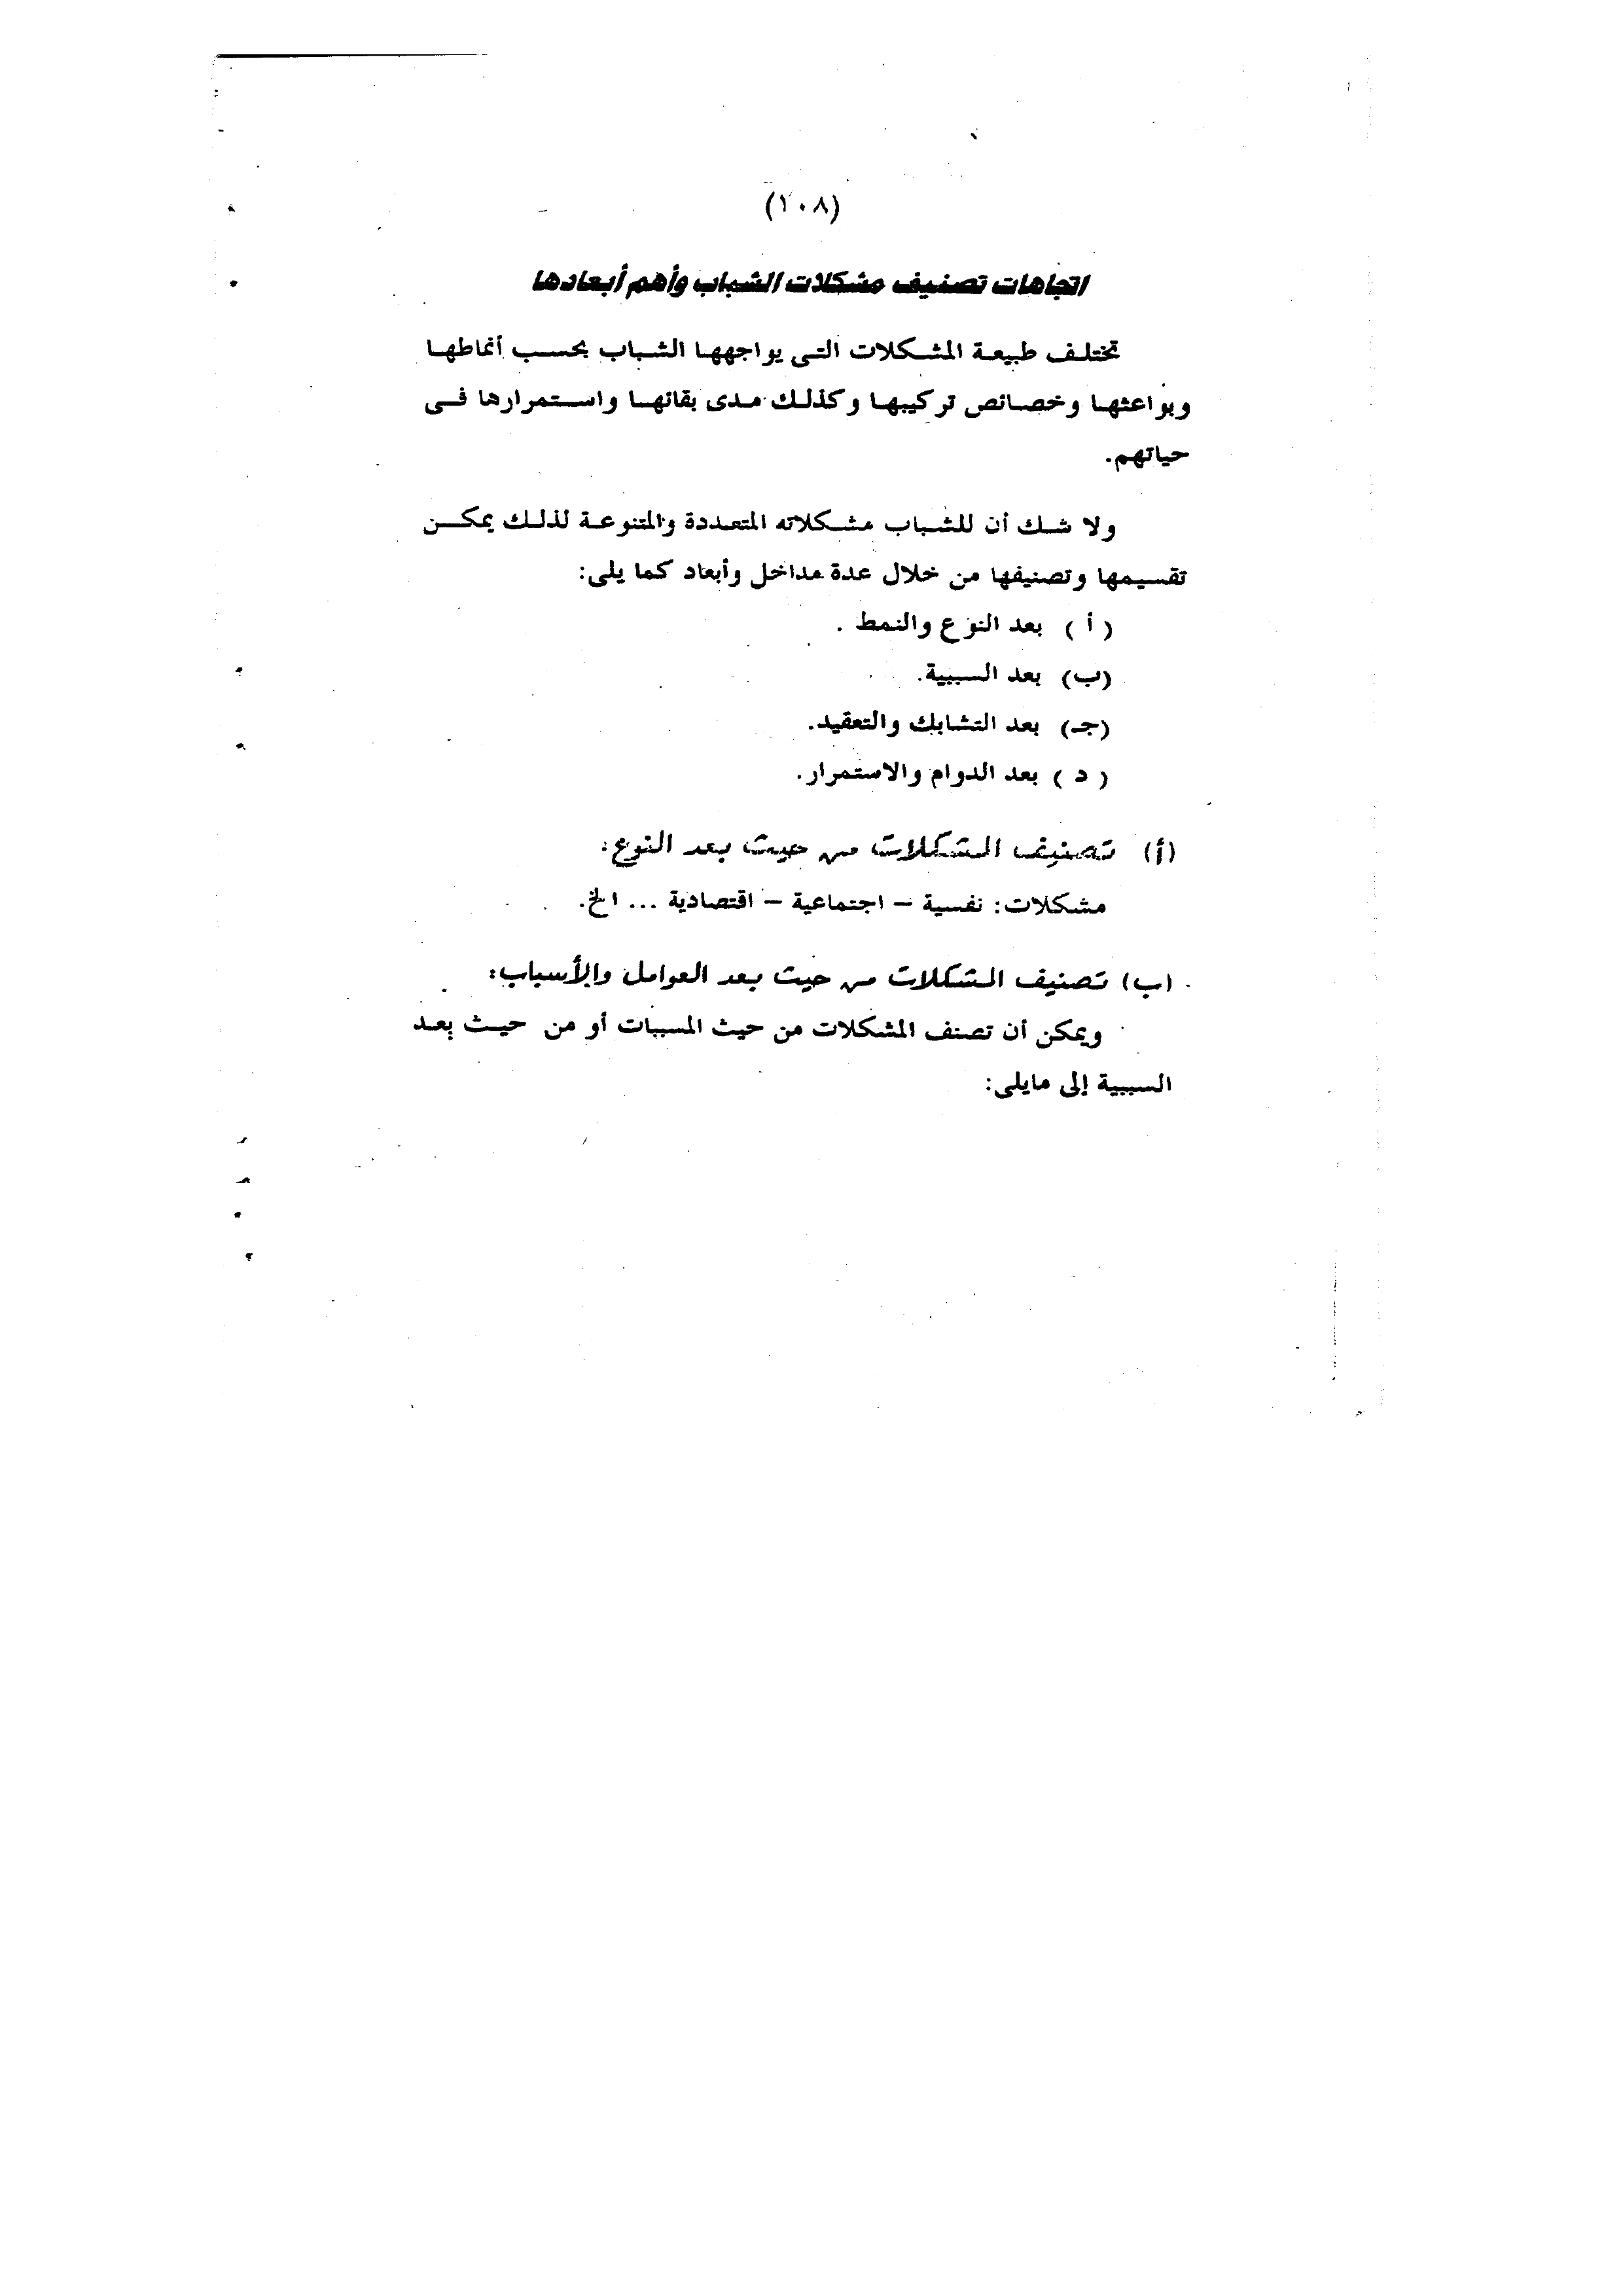 (١٠٨)
اتجاهات تصنيف مشكلات الشباب وأهم أبعادها
تختلف طبيعة المشكلات التى يواجهها الشباب بحسب أنماطها
وبواعثها وخصائص تركيبها وكذلك مدى بقائها واستمرارها فى
حياتهم.
ولا شك أن للشباب مشكلاته المتعددة والمتنوعة لذلك يمكن
تقسيمها وتصنيفها من خلال عدة مداخل وأبعاد كما يلى:
( أ ) بعد النوع والنمط .
(ب) بعد السببية.
(جـ) بعد التشابك والتعقيد.
( د ) بعد الدوام والاستمرار.
(أ) تصنيف المشكلات من حيث بعد النوع:
مشكلات: نفسية – اجتماعية – اقتصادية ... الخ.
(ب) تصنيف المشكلات من حيث بعد العوامل والأسباب:
ويمكن أن تصنف المشكلات من حيث المسببات أو من حيث بعد
السببية إلى مايلى: